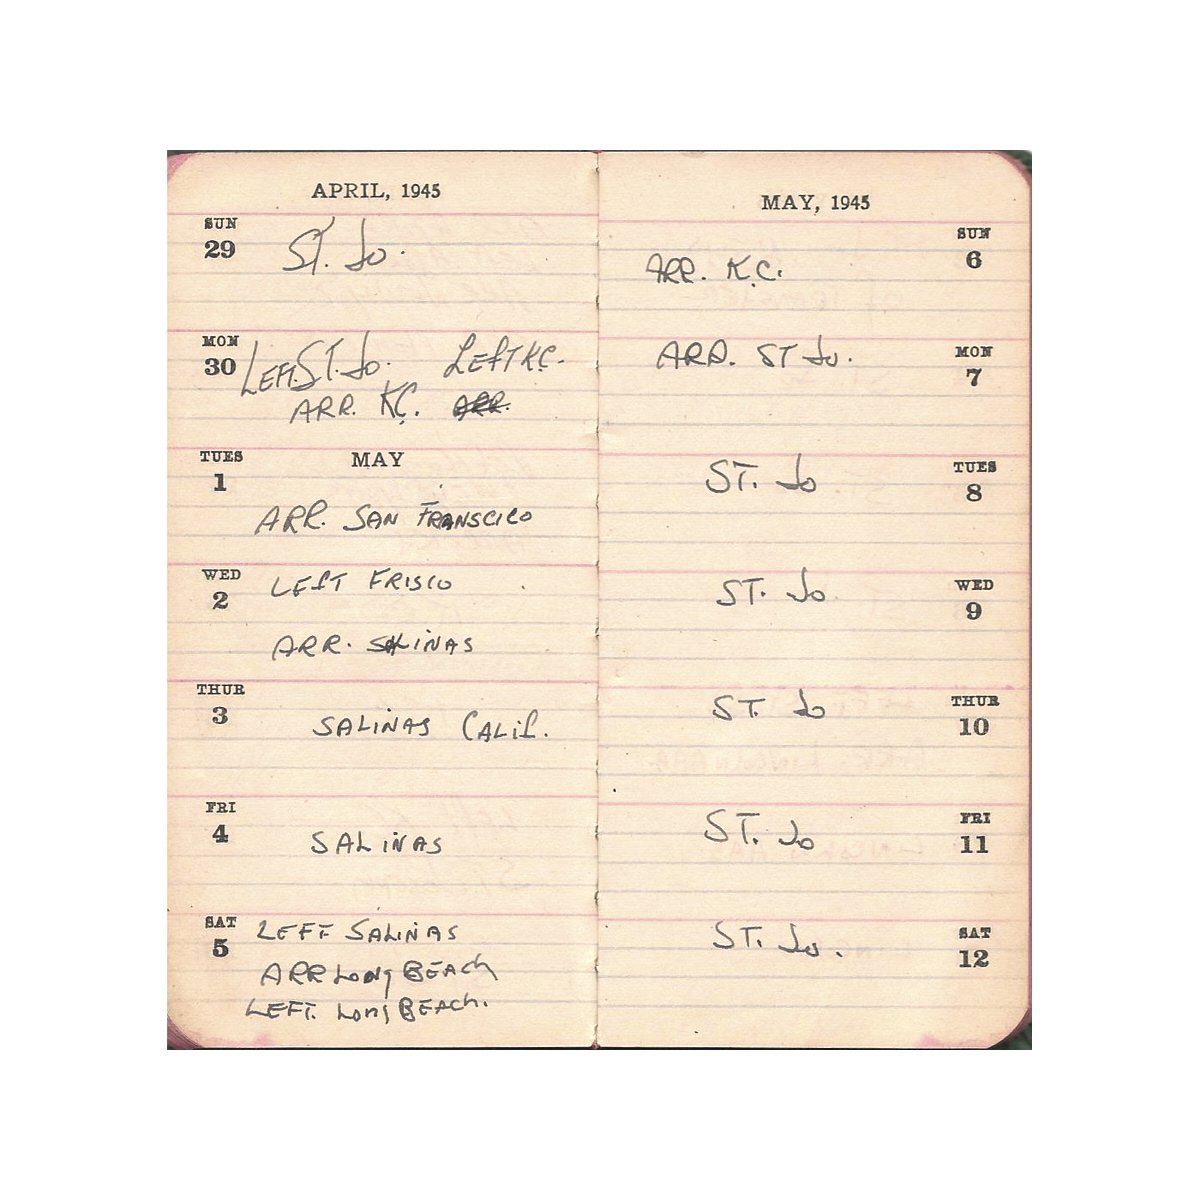 APRIL, 1945
SUN
29
ST. Jo.
MON
30
LEFT. ST. Jo. LEFT K.C.
ARR. K.C. ARR.
TUES
1
MAY
ARR. SAN FRANSCICO
WED
2
LEFT FRISCO
ARR. SALINAS
THUR
3
SALINAS CALIF.
FRI
4
SALINAS
SAT
5
LEFT SALINAS
ARR LONG BEACH
LEFT. LONG BEACH.
MAY, 1945
SUN
6
ARR. K.C.
MON
7
ARR. ST Jo.
TUES
8
ST. Jo
WED
9
ST. Jo
THUR
10
ST. Jo
FRI
11
ST. Jo
SAT
12
ST. Jo.